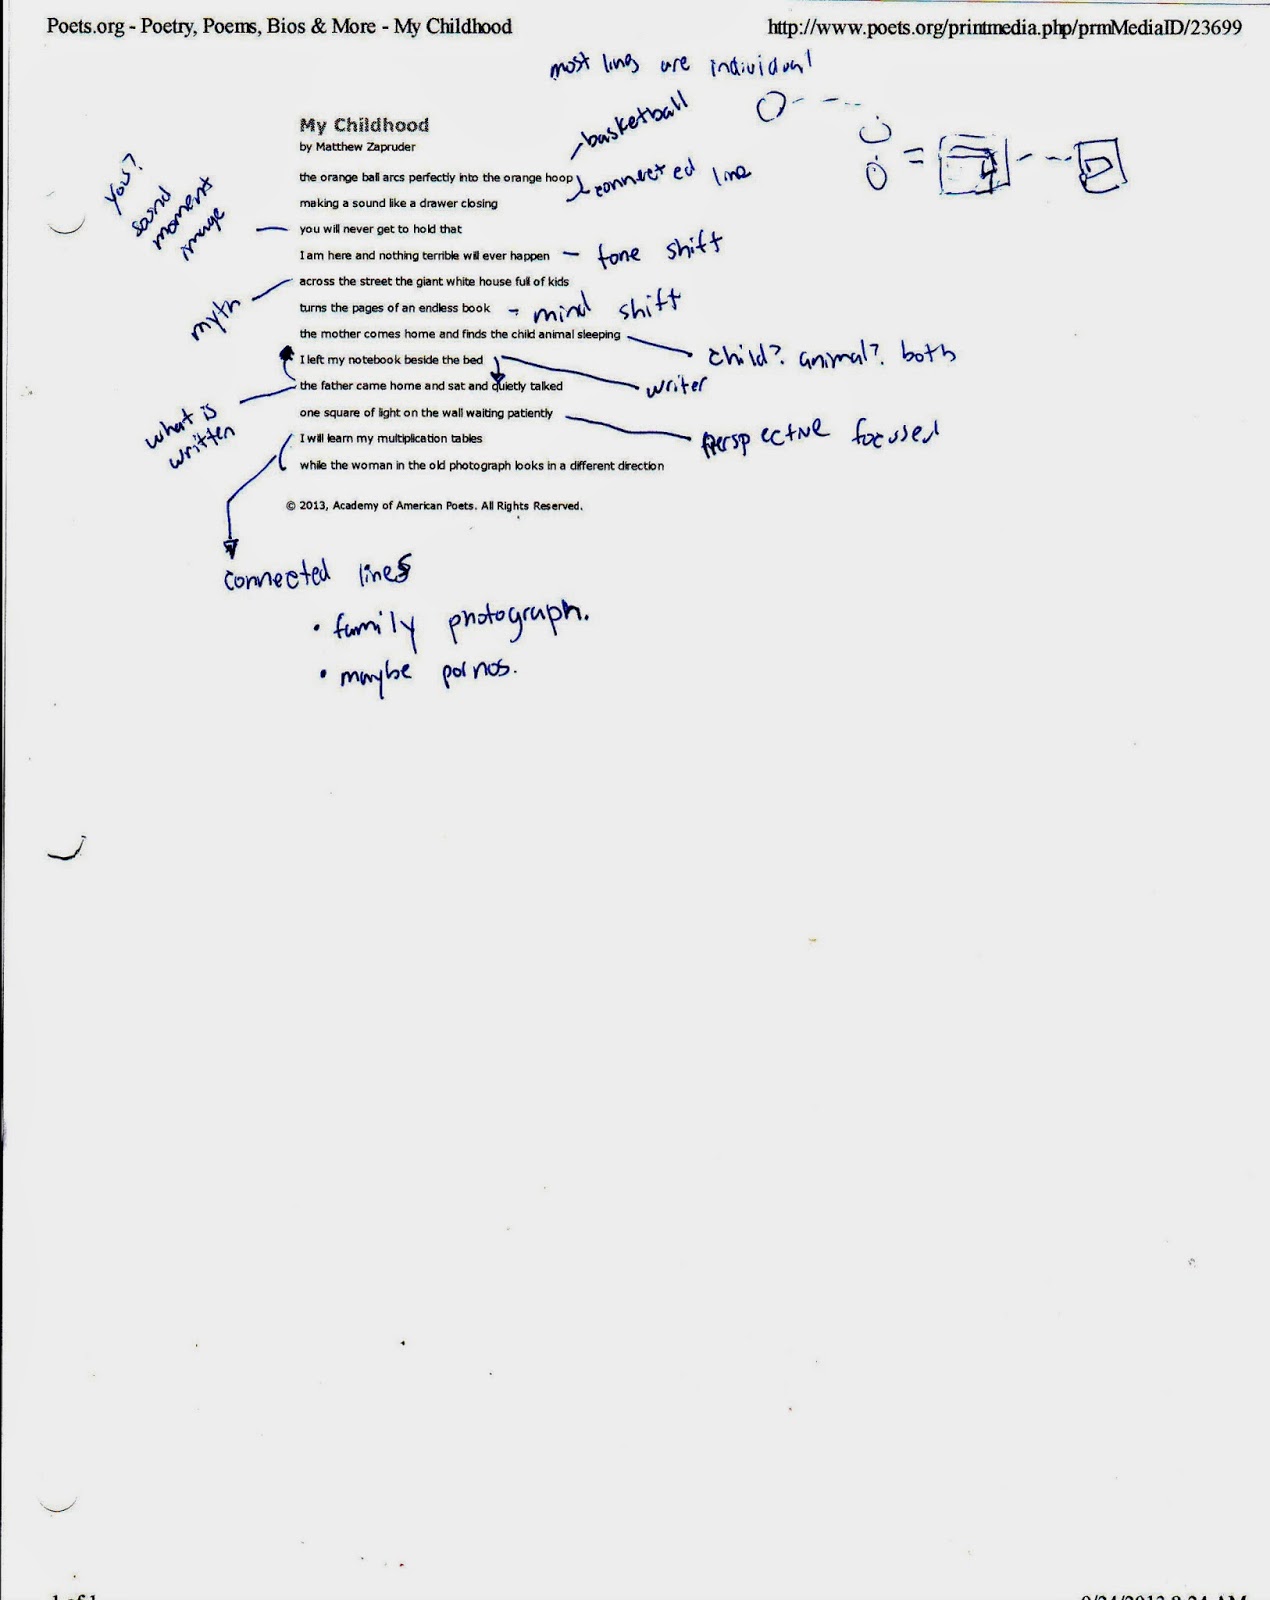 Poets.org - Poetry, Poems, Bios & More - My Childhood
http://www.poets.org/printmedia.php/prmMediaID/23699
most lines are individual
My Childhood
by Matthew Zapruder
basketball
the orange ball arcs perfectly into the orange hoop
connected line
making a sound like a drawer closing
you?
sound
moment
image
you will never get to hold that
I am here and nothing terrible will ever happen
tone shift
myth
across the street the giant white house full of kids
turns the pages of an endless book
mind shift
the mother comes home and finds the child animal sleeping
child? animal? both
I left my notebook beside the bed
writer
what is
written
the father came home and sat and quietly talked
one square of light on the wall waiting patiently
perspective focused
I will learn my multiplication tables
while the woman in the old photograph looks in a different direction
© 2013, Academy of American Poets. All Rights Reserved.
connected lines
• family photograph.
• maybe pornos.
1 of 1
9/24/2013 8:24 AM